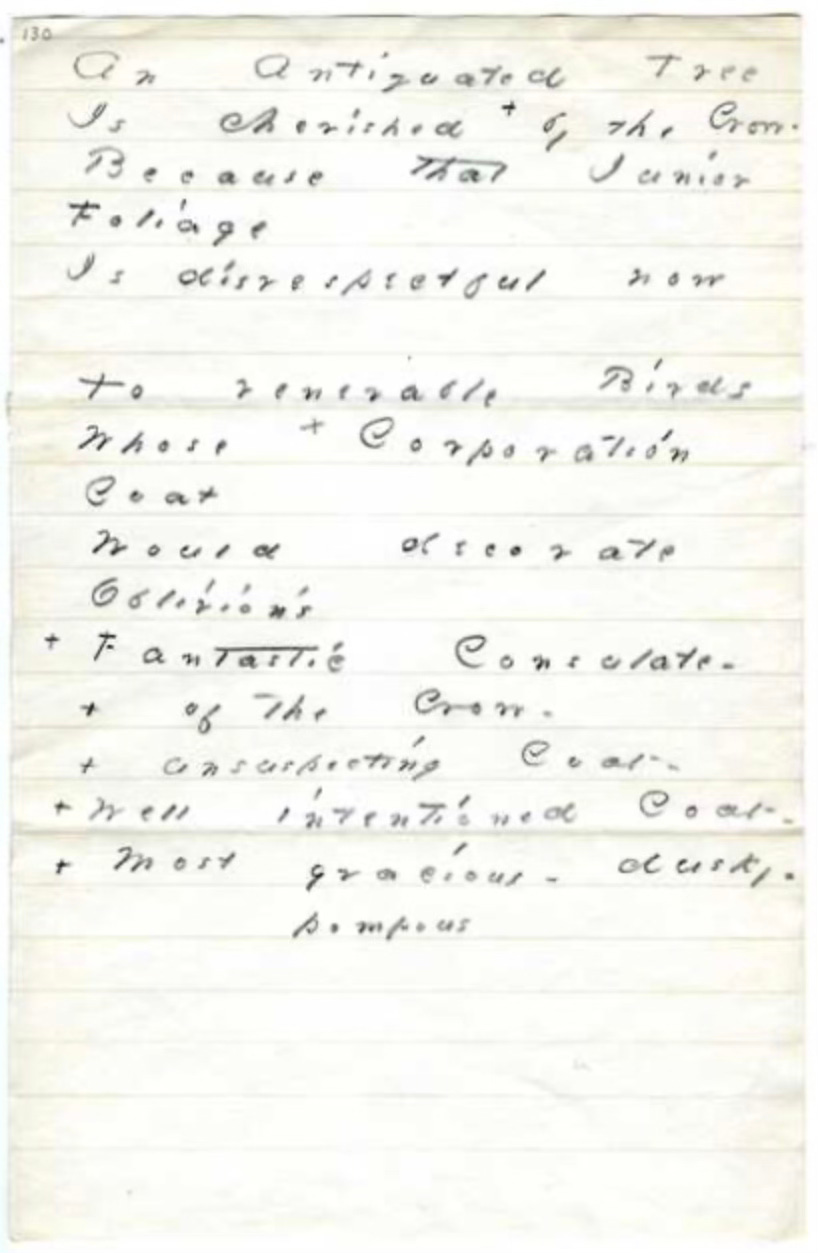 130
An Antiquated Tree
Is cherished + by the Crow -
Because that Junior
Foliage
Is disrespectful now
to venerable Birds
Whose + Corporation
Coat
Would decorate
Oblivion's
+ Fantastic Consulate -
+ of the Crow -
+ unsuspecting Coat -
+ Well intentioned Coat -
+ Most gracious - dusky -
pompous